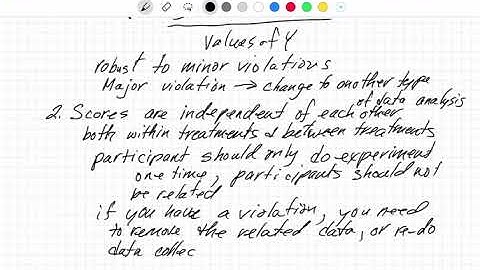 Values of Y
robust to minor violations
Major violation → change to another type
of data analysis
2. Scores are independent of each other
both within treatments & between treatments
participant should only do experiment
one time, participants should not
be related
if you have a violation, you need
to remove the related data, or re-do
data collec